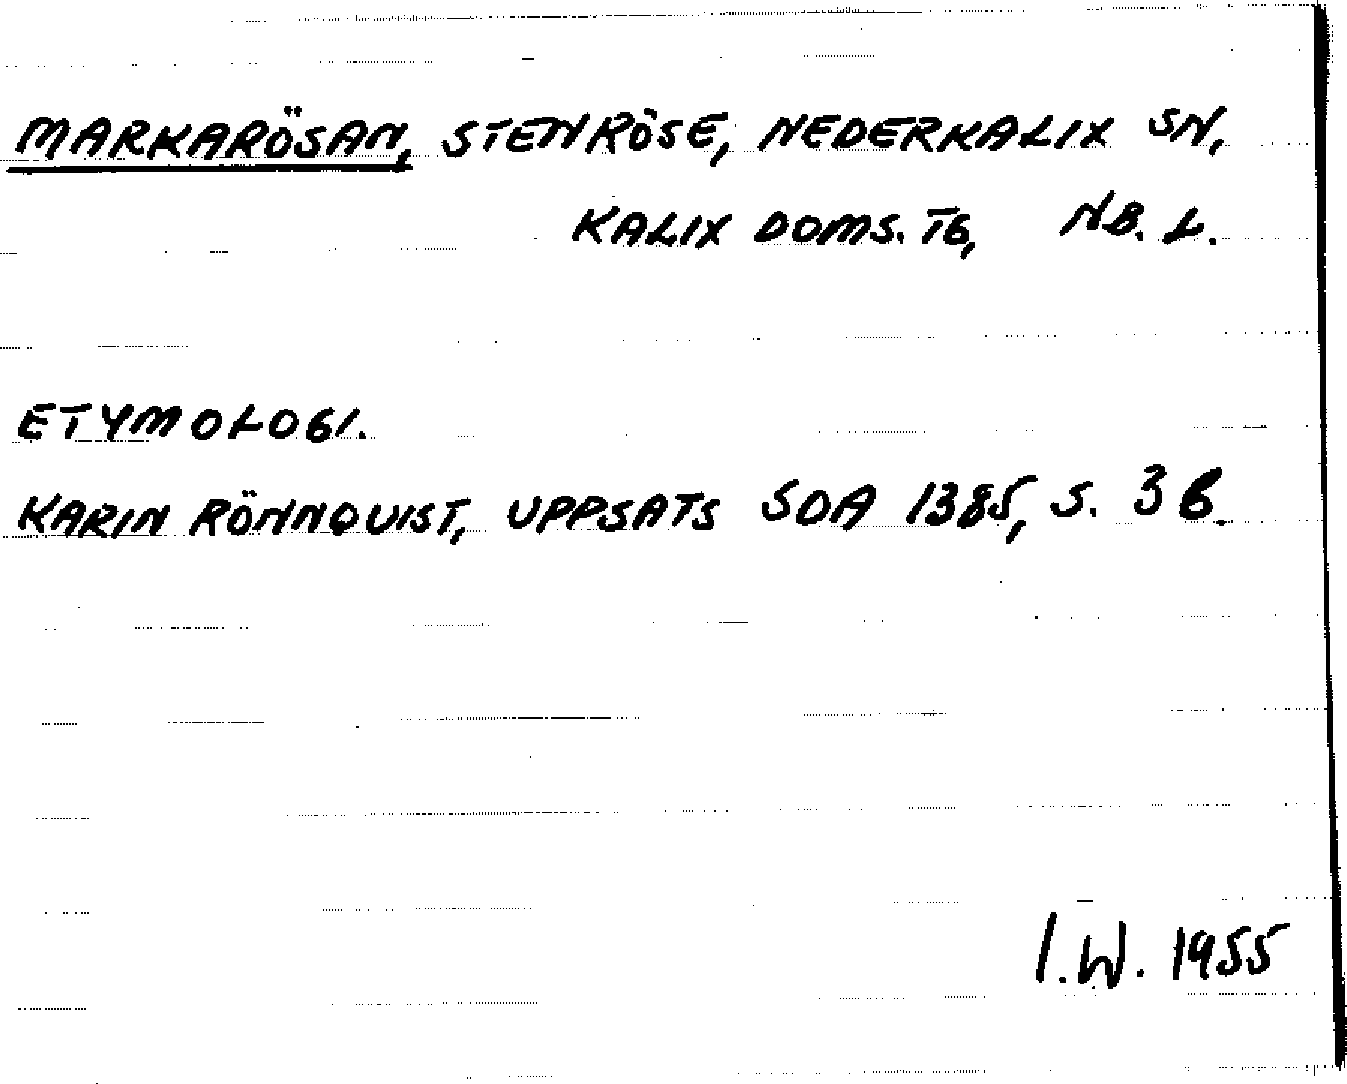 MARKARÖSAN, STENRÖSE, NEDERKALIX SN,
KALIX DOMS. TG, NB. L.
ETYMOLOGI.
KARIN RÖNNQUIST, UPPSATS SOA 1385, S. 36.
I.W. 1955